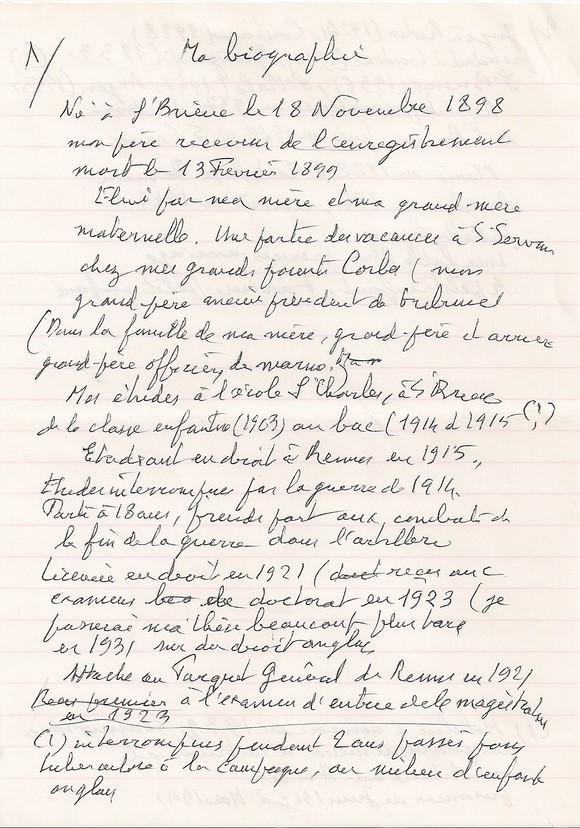 1/ Ma biographie
Né à St Brieuc le 18 Novembre 1898
mon père receveur de l'enregistrement
mort le 13 Février 1899
Elevé par ma mère et ma grand-mère
maternelle. Une partie des vacances à St Servan
chez mes grands parents Corbes (mon
grand-père ancien président de tribunal
(Dans la famille de ma mère, grand-père et arrière
grand-père officiers de marine.
Mes études à l'école St Charles, à St Brieuc
de la classe enfantine (1903) au bac (1914 à 1915 (1)
Etudiant en droit à Rennes en 1915.,
Etudes interrompues par la guerre de 1914.
Parti à 18 ans, prends part aux combats de
la fin de la guerre dans l'artillerie
Licencié en droit en 1921 ( reçu aux
examens doctorat en 1923 (je
passerai ma thèse beaucoup plus tard
en 1931 sur du droit anglais
Attaché au Parquet Général de Rennes en 1921
Reçu premier à l'examen d'entrée de la magistrature
en 1923
(1) interrompues pendant 2 ans passés pour
tuberculose à la campagne, au milieu d'enfants
anglais